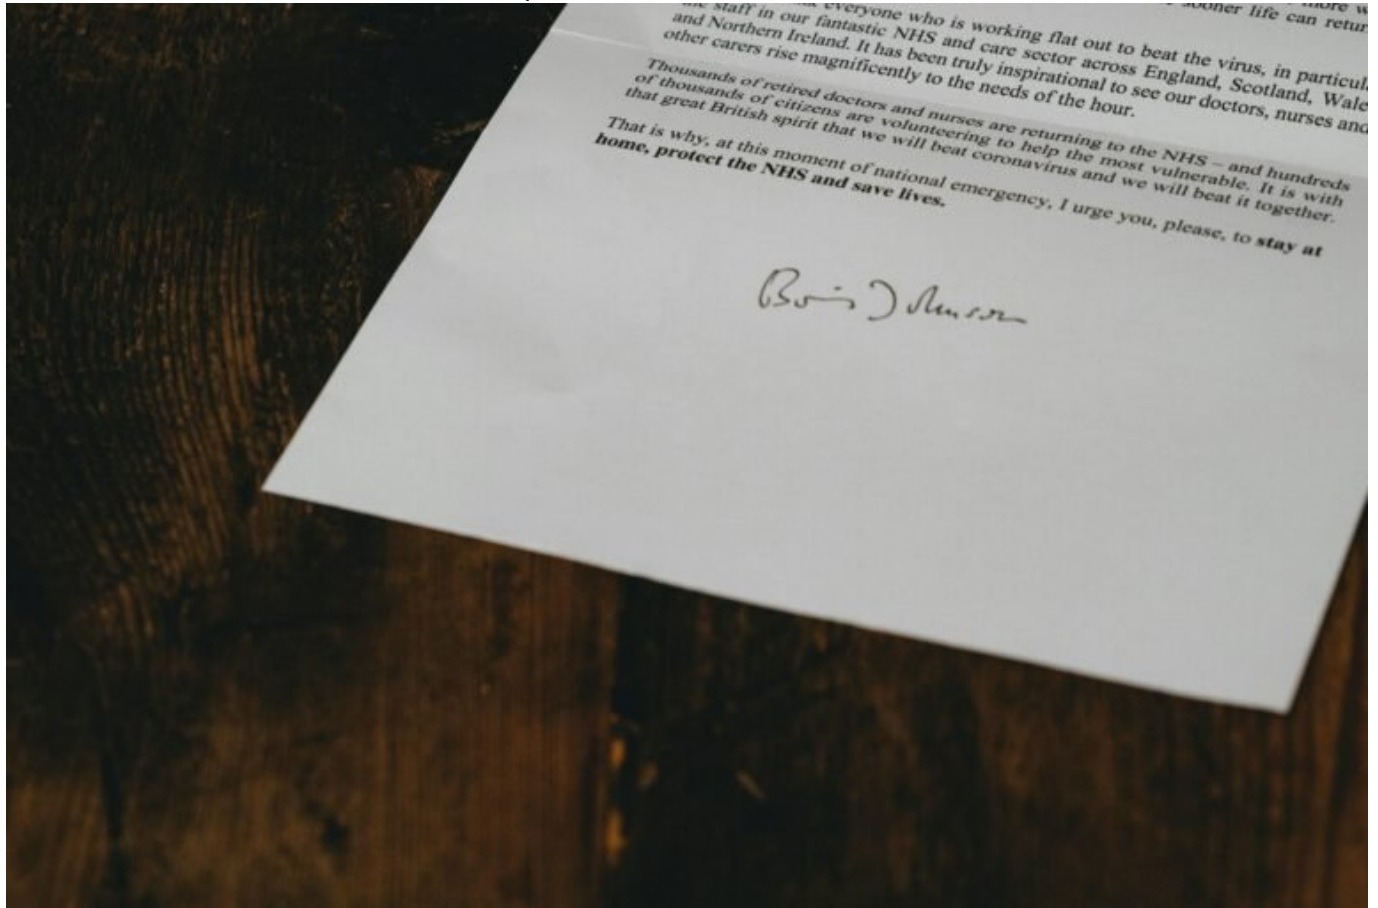 sooner life can retur
everyone who is working flat out to beat the virus, in particul
the staff in our fantastic NHS and care sector across England, Scotland, Wale
and Northern Ireland. It has been truly inspirational to see our doctors, nurses and
other carers rise magnificently to the needs of the hour.
Thousands of retired doctors and nurses are returning to the NHS – and hundreds
of thousands of citizens are volunteering to help the most vulnerable. It is with
that great British spirit that we will beat coronavirus and we will beat it together.
That is why, at this moment of national emergency, I urge you, please, to stay at
home, protect the NHS and save lives.
Boris Johnson